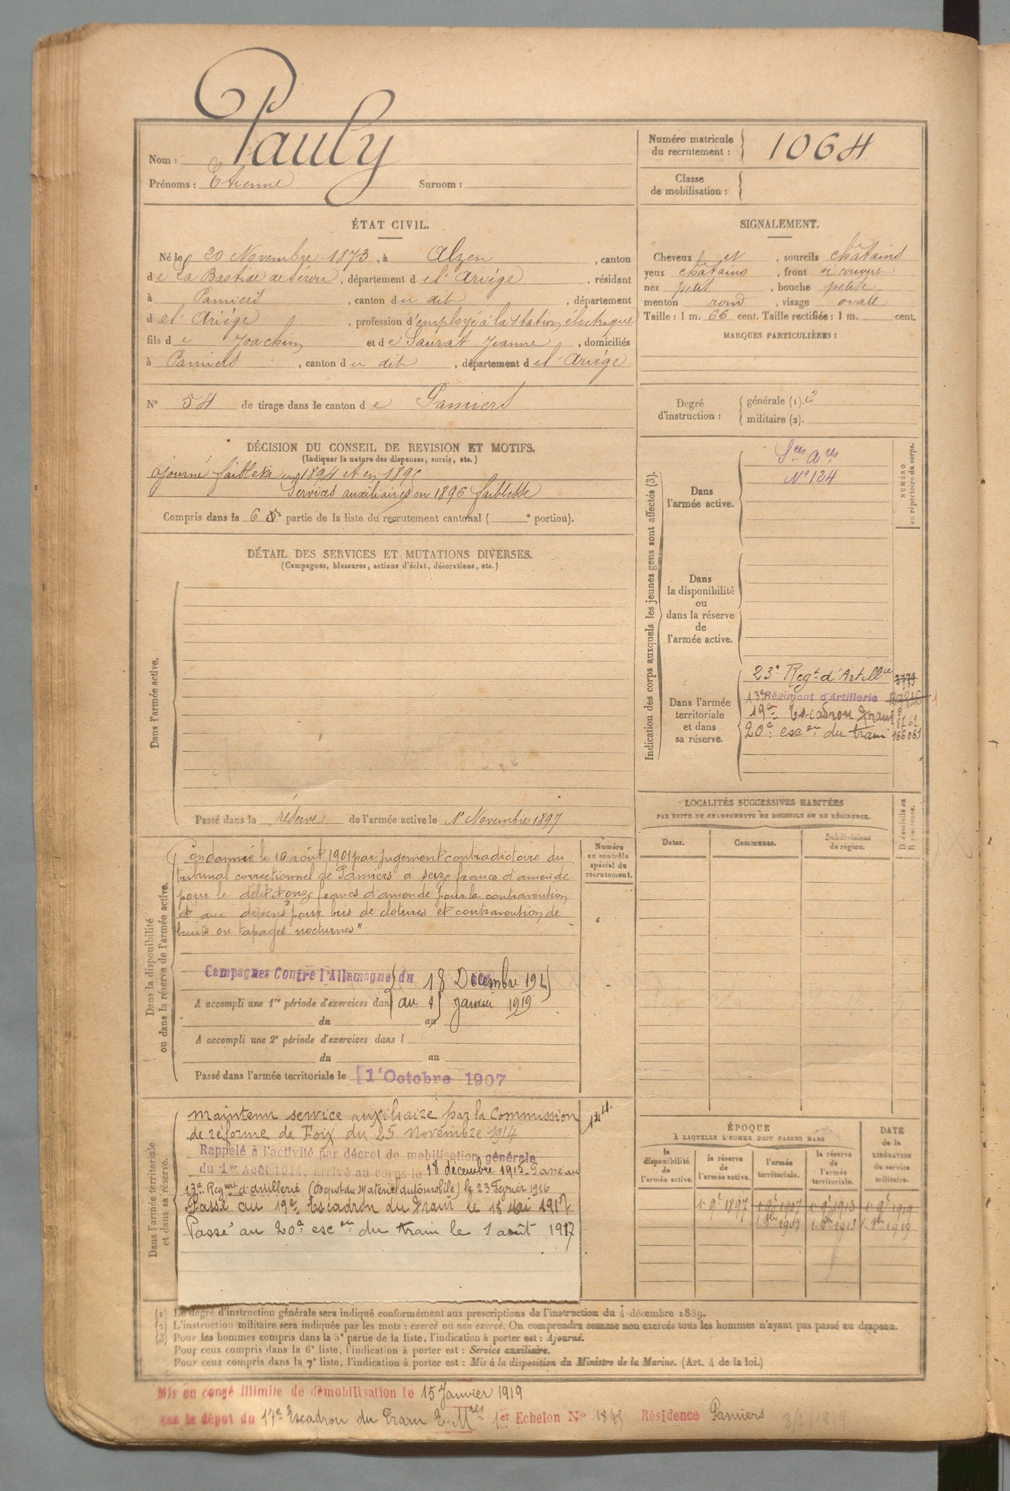 Nom : Pauly
Prénoms : Etienne Surnom :
Numéro matricule du recrutement : 1064
Classe de mobilisation :
ÉTAT CIVIL.
Né le 20 Novembre 1873, à Alzen, canton
de La Bastide de Sérou, département de l'Ariége, résidant
à Pamiers, canton du dit, département
de l'Ariége, profession d'employé à la station électrique
fils de Joachim et de Saurat Jeanne, domiciliés
à Pamiers, canton du dit, département de l'Ariége
N° 54 de tirage dans le canton de Pamiers
SIGNALEMENT.
Cheveux et, sourcils châtains
yeux châtains, front découvert
nez petit, bouche petite,
menton rond, visage ovale
Taille : 1 m. 66 cent. Taille rectifiée : 1 m. cent.
MARQUES PARTICULIÈRES :
Degré d'instruction : générale (1).
militaire (2).
DÉCISION DU CONSEIL DE REVISION ET MOTIFS.
(Indiquer la nature des dispenses, sursis, etc.)
ajourné faiblesse en 1894 et en 1895
Services auxiliaires en 1896 faiblesse
Compris dans la 6e partie de la liste du recrutement cantonal ( e portion).
DÉTAIL DES SERVICES ET MUTATIONS DIVERSES.
(Campagnes, blessures, actions d'éclat, décorations, etc.)
Dans l'armée active.
Passé dans la réserve de l'armée active le 1er Novembre 1897
Indication des corps auxquels les jeunes gens sont affectés (3).
NUMÉRO au répertoire du corps.
Dans l'armée active.
Sces Ares
N° 124
Dans la disponibilité ou dans la réserve de l'armée active.
Dans l'armée territoriale et dans sa réserve.
23e Regt d'Artillie
13e Régiment d'Artillerie
19e Escadron Train
20e escon du train 166061
LOCALITÉS SUCCESSIVES HABITÉES
PAR SUITE DE CHANGEMENTS DE DOMICILE OU DE RÉSIDENCE.
Dates. Communes. Subdivisions de région. D domicile ou R résidence.
Dans la disponibilité ou dans la réserve de l'armée active.
Condamné le 10 août 1901 par jugement contradictoire du
tribunal correctionnel de Pamiers à seize francs d'amende
pour le délit & onze francs d'amende pour la contravention
et aux dépens "pour bris de clotures et contravention de
bruits ou tapages nocturnes"
Numéro au contrôle spécial du recrutement.
Campagnes Contre l'Allemagne du 18 Décembre 191
A accompli une 1re période d'exercices dans au Janvier 1919
du au
A accompli une 2e période d'exercices dans l
du au
Passé dans l'armée territoriale le 1er Octobre 1907
Dans l'armée territoriale et dans sa réserve.
Maintenu service auxiliaire par la Commission
de réforme de Foix du 25 Novembre 1914
Rappelé à l'activité par décret de mobilisation générale
du 1er Août 1914, arrivé au corps le 18 décembre 1915. Passé au
13e Regmt d'artillerie (Dépôt du Matériel automobile) le 23 Février 1916
Passé au 19e Escadron du Train le 15 Mai 1917
Passé au 20e escon du train le 1 août 1917
ÉPOQUE
À LAQUELLE L'HOMME DOIT PASSER DANS
la disponibilité de l'armée active. la réserve de l'armée active. l'armée territoriale. la réserve de l'armée territoriale.
DATE de la LIBÉRATION du service militaire.
1 9e 1897 1 9e 1907 1 9e 1913 1 9e 1919
(1) Le degré d'instruction générale sera indiqué conformément aux prescriptions de l'instruction du 4 décembre 1889.
(2) L'instruction militaire sera indiquée par les mots : exercé ou non exercé. On comprendra comme non exercés tous les hommes n'ayant pas passé au drapeau.
(3) Pour les hommes compris dans la 5e partie de la liste, l'indication à porter est : Ajourné.
Pour ceux compris dans la 6e liste, l'indication à porter est : Service auxiliaire.
Pour ceux compris dans la 7e liste, l'indication à porter est : Mis à la disposition du Ministre de la Marine. (Art. 4 de la loi.)
Mis en congé illimité de démobilisation le 15 Janvier 1919
par le dépôt du 17e Escadron du Train 1er Echelon N° Résidence Pamiers